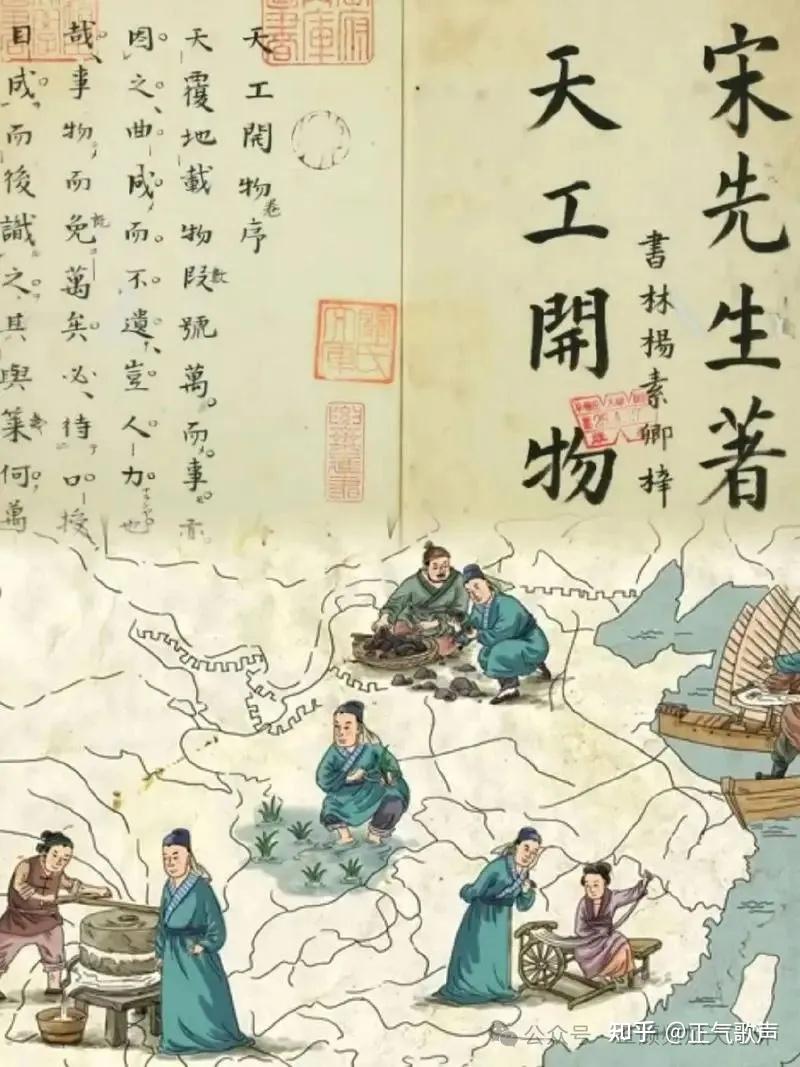 宋先生著
書林楊素卿梓
天工開物
天工開物卷序
天覆地載物數號萬而事亦
因之曲成而不遺豈人力也
哉事物而既萬矣必待口授
目成而後識之其與幾何萬
公众号
知乎 @正气歌声